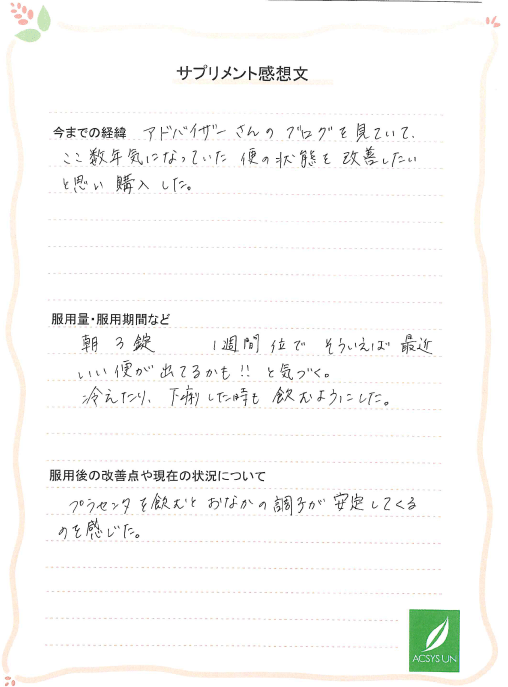 サプリメント感想文
今までの経緯 アドバイザーさんのブログを見ていて、
ここ数年気になっていた便の状態を改善したい
と思い購入した。
服用量・服用期間など
朝3錠 1週間位でそういえば最近
いい便が出てるかも!!と気づく。
冷えたり、下痢した時も飲むようにした。
服用後の改善点や現在の状況について
プラセンタを飲むとおなかの調子が安定してくる
のを感じた。
ACSYS UN